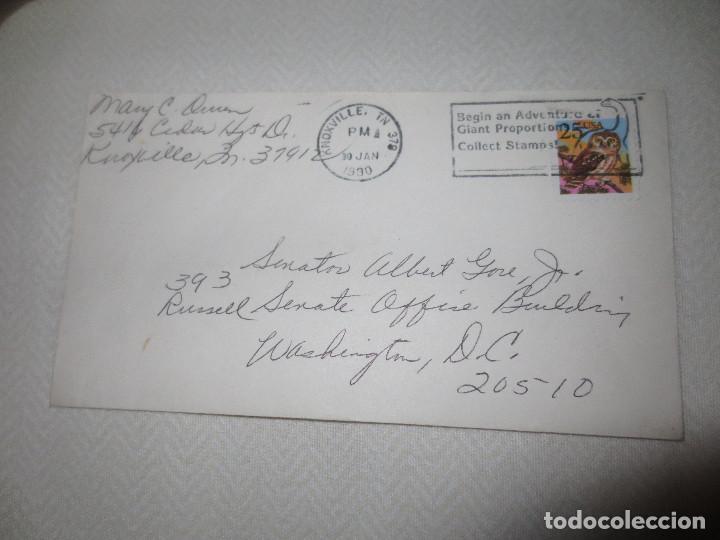 Mary C. Owen
5416 Cedar Hgts Dr.
Knoxville, Tn. 37912
KNOXVILLE, TN 379
PM
30 JAN
1990
Begin an Adventure of
Giant Proportions
Collect Stamps!
25
USA
Senator Albert Gore, Jr.
393
Russell Senate Office Building
Washington, D.C.
20510
todocoleccion.net